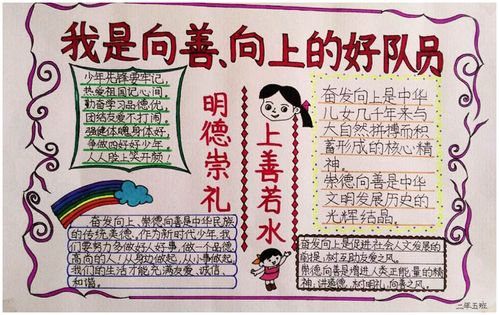 我是向善、向上的好队员
少年先锋要牢记，
热爱祖国记心间，
勤奋学习品德优，
团结友爱不打闹，
强健体魄身体好，
争做四好好少年，
人人脸上笑开颜！
明德崇礼
上善若水
奋发向上是中华
儿女几千年来与
大自然拼搏而积
蓄形成的核心精
神。
崇德向善是中华
文明发展历史的
光辉结晶。
奋发向上、崇德向善是中华民族
的传统美德，作为新时代少年，我
们要努力多做好人好事，做一个品德
高尚的人！从身边做起，从小事做起，
我们的生活才能充满友爱、诚信、
和谐。
奋发向上是促进社会人文发展的
前提，树互助友爱之风。
崇德向善是增进人类正能量的精
神，讲道德、树明礼、向善之风。
二年五班